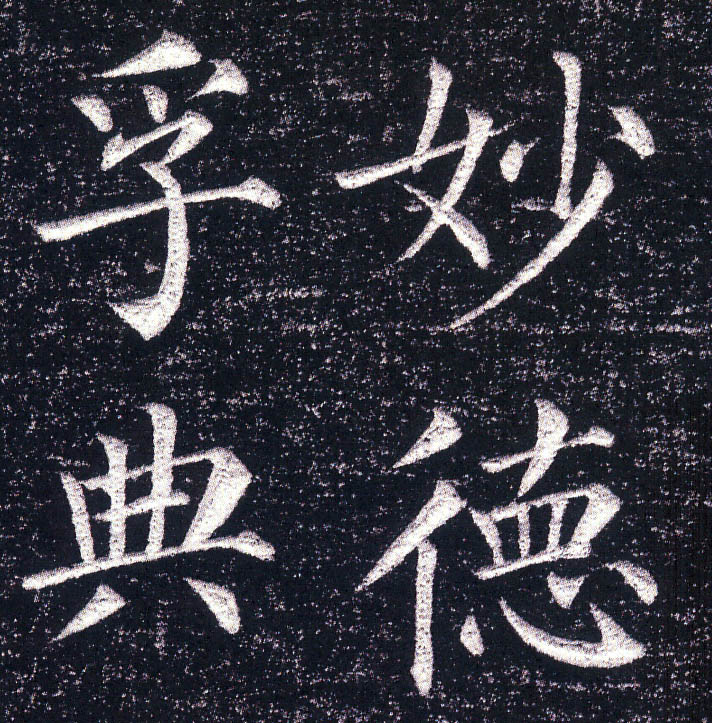 妙德
孚典